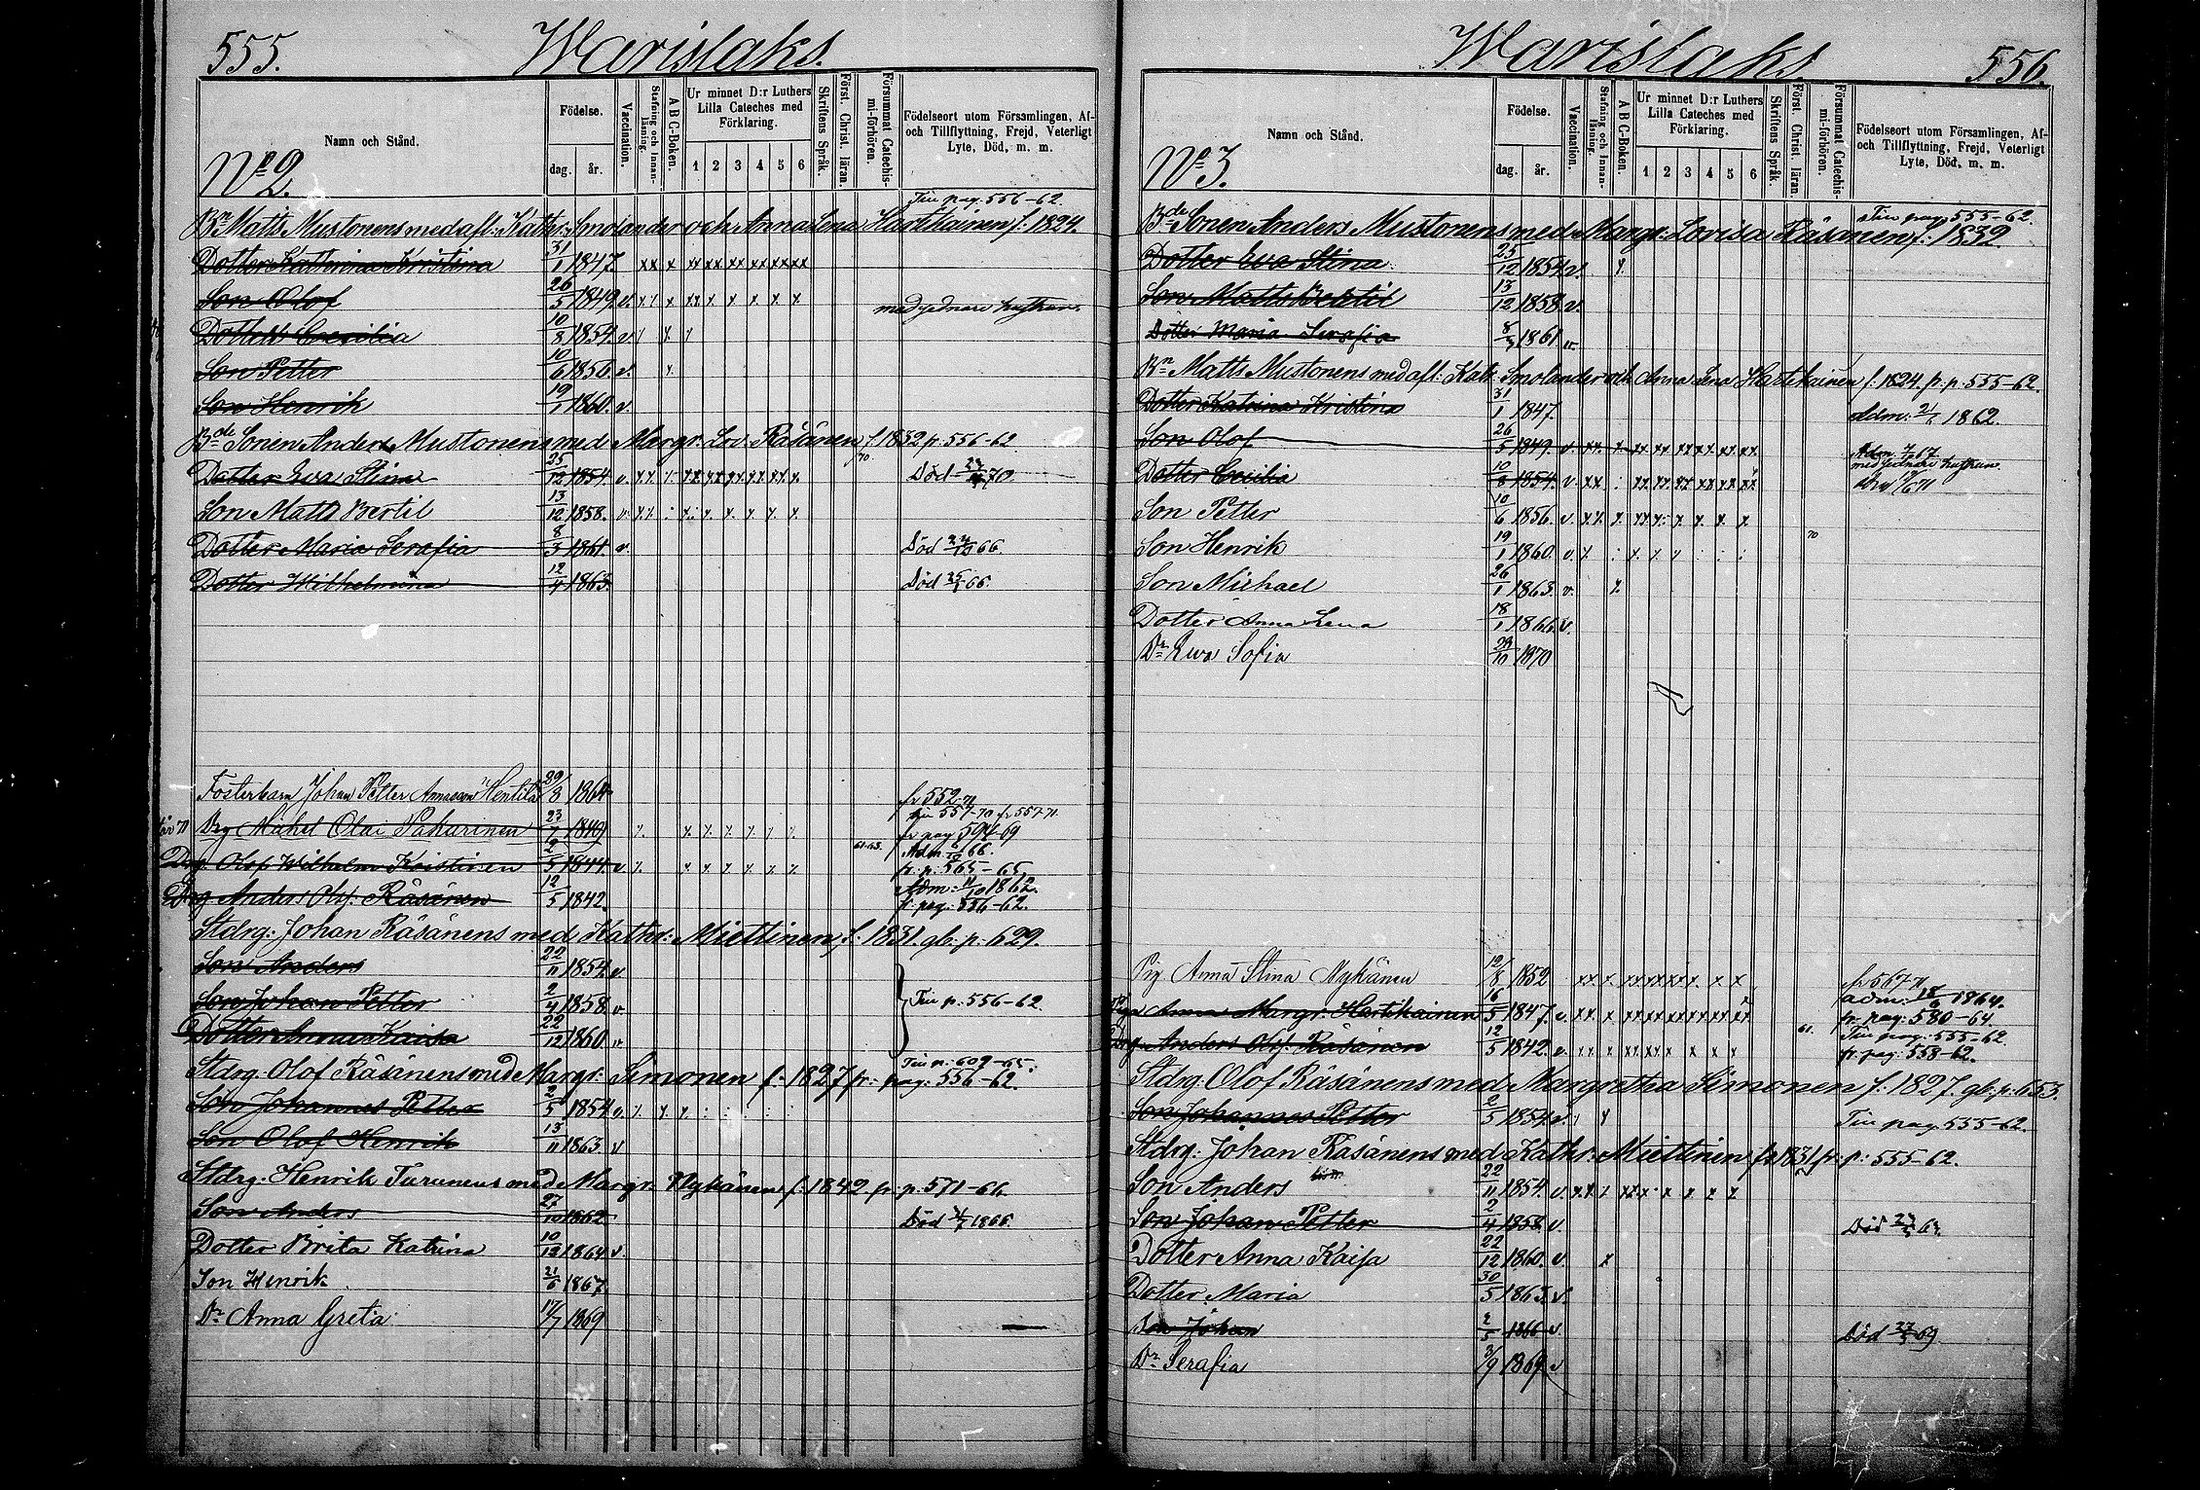 555. Warislaks.
Namn och Stånd.
Födelse.
dag. år.
Vaccination.
Stafning och Innanläsning.
A B C-Boken.
Ur minnet D:r Luthers Lilla Cateches med Förklaring.
1 2 3 4 5 6
Skriftens Språk.
Först. Christ. läran.
Försummat Catechismi-förhören.
Födelseort utom Församlingen, Af- och Tillflyttning, Frejd, Veterligt Lyte, Död, m. m.
No 2.
Tin pag. 556-62.
Bn Matts Mustonens med afl: Kath: Smolander och Anna Lena Hartikainen f: 1824.
Dotter Katterina Kristina 31/1 1847.
Son Olof 26/5 1849. v.
Dotter Caecilia 10/8 1854. v.
Son Petter 10/6 1856. v.
Son Henrik 19/1 1860. v.
Bde Sonen Anders Mustonens med Margr: Lov: Räsänen f. 1832 p. 556-62
Dotter Eva Stina 25/12 1854. v. 70 Död 70
Son Matts Bertil 13/12 1858. v.
Dotter Maria Serafia 8/3 1861. v. Död 66.
Dotter Wilhelmina 12/4 1863. Död 66.
Fosterbarn Johan Petter Annasson Hentilä 29/8 1864 fr 552-71
Drg Michel Olai Pakarinen 23/1 1849 tin 557-70 fr 557-71 fr pag 594-69
Drg Olof Wilhelm Koistinen 2/5 1844. v. 61-63. Adm. 66. fr. p: 565-65
Drg Anders Olof Räsänen 12/5 1842. Adm: 11/10 1862. fr. pag: 556-62.
Stdrg: Johan Räsänens med Kathr: Miettinen f: 1831. gb: p: 629.
Son Anders 22/11 1854. v.
Son Johan Petter 2/4 1858. v. Tin p: 556-62.
Dotter Anna Kaisa 22/12 1860. v.
Tin p: 609-65.
Stdrg. Olof Räsänens med Margr: Simonen f: 1827 fr: pag: 556-62.
Son Johannes Petter 2/5 1854. v.
Son Olof Henrik 13/11 1863. v
Stdrg. Henrik Turunens med Margr. Nykänen f: 1842 fr. p. 571-66.
Son Anders 27/10 1862 Död 1866.
Dotter Brita Katrina 10/12 1864. v
Son Henrik 21/6 1867.
Dr Anna Greta 17/7 1869
Warislaks. 556.
Namn och Stånd.
Födelse.
dag. år.
Vaccination.
Stafning och Innanläsning.
A B C-Boken.
Ur minnet D:r Luthers Lilla Cateches med Förklaring.
1 2 3 4 5 6
Skriftens Språk.
Först. Christ. läran.
Försummat Catechismi-förhören.
Födelseort utom Församlingen, Af- och Tillflyttning, Frejd, Veterligt Lyte, Död, m. m.
No 3.
Tin pag 555-62.
Bde Sonen Anders Mustonens med Margr: Lovisa Räsänen f: 1832
Dotter Eva Stina. 25/12 1854. v.
Son Matts Bertil 13/12 1858. v.
Dotter Maria Serafia 8/3 1861. v.
Bn Matts Mustonens med afl: Kath: Smolander och Anna Lena Hartikainen f. 1824. fr. p. 555-62
Dotter Katrina Kristina 31/1 1847. Adm: 2/1 1862.
Son Olof 26/5 1849. v.
Dotter Cecilia 10/8 1854. v.
Son Petter 10/6 1856. v.
Son Henrik 19/1 1860. v. 70
Son Michael 26/1 1863. v.
Dotter Anna Lena 18/1 1866. v.
Dr Eva Sofia 29/10 1870
Pig Anna Stina Nykänen 12/8 1852 fr 567-71
Piga Anna Margr: Hartikainen 16/5 1847. v. adm: 18/6 1864. fr. pag: 580-64.
Drg. Anders Olof Räsänen 12/5 1842. v. 61. Tin pag: 555-62. fr. pag: 558-62.
Stdrg: Olof Räsänens med Margretha Simonen f: 1827. gb: p: 653.
Son Johannes Petter 2/5 1854. v. Tin pag 555-62.
Stdrg: Johan Räsänens med Kathr: Miettinen f: 1831 fr: p: 555-62.
Son Anders 22/11 1854. v.
Son Johan Petter 2/4 1858. v. Död
Dotter Anna Kaisa 22/12 1860. v.
Dotter Maria 30/5 1863. v.
Son Johan 2/5 1866 v. Död 69
Dr Serafia 3/9 1869 v